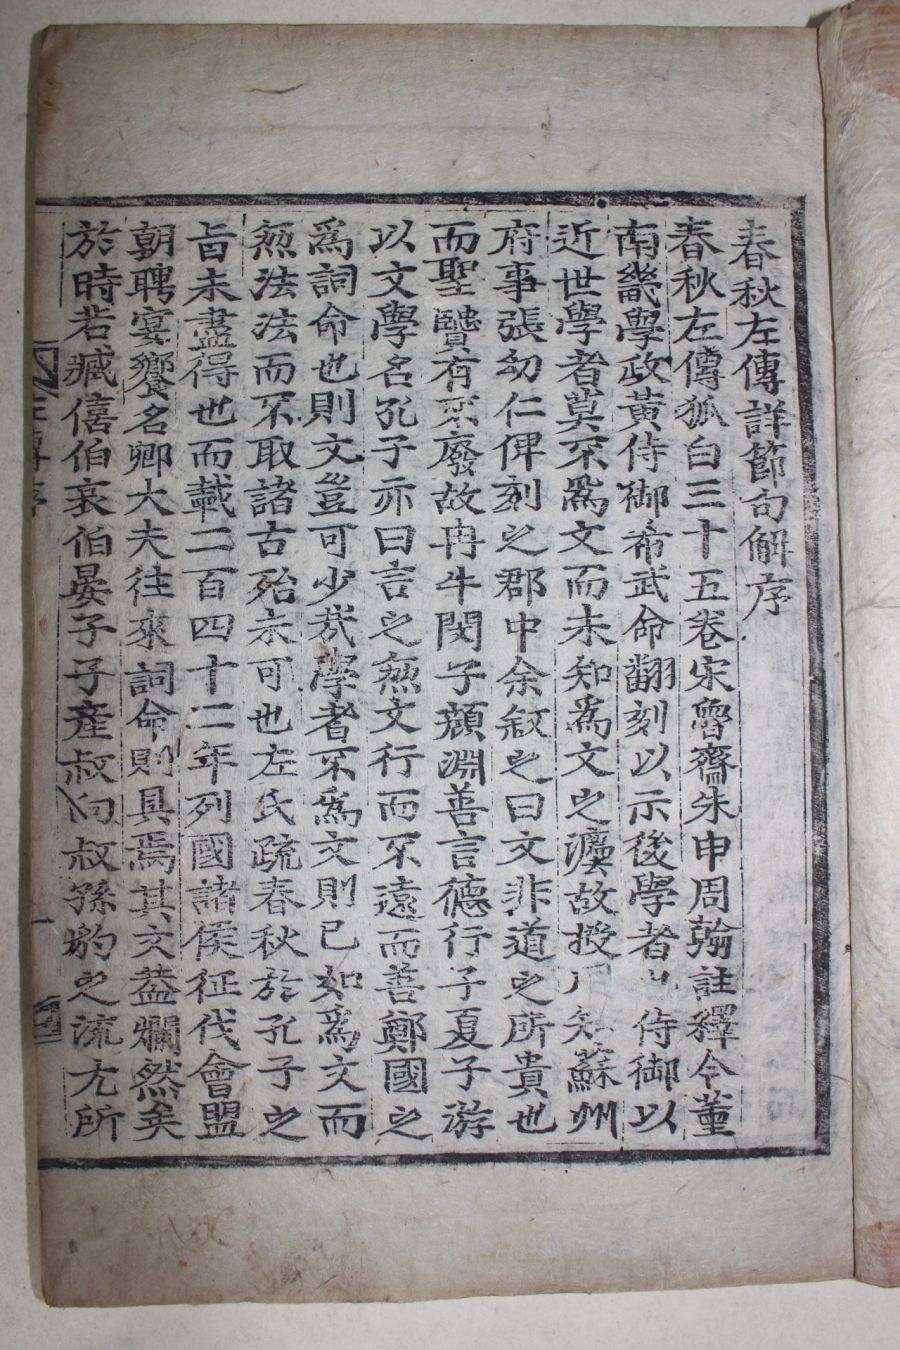 春秋左傳詳節句解序
春秋左傳狐白三十五卷宋魯齋朱申周翰註釋今董
南畿學政黃侍御希武命翻刻以示後學者 侍御以
近世學者莫不爲文而未知爲文之灋故授 知蘇州
府事張幼仁俾刻之郡中余叙之曰文非道之所貴也
而聖贒有不廢故冉牛閔子顔淵善言德行子夏子游
以文學名孔子亦曰言之無文行而不遠而善鄭國之
爲詞命也則文豈可少㢤學者不爲文則已如爲文而
無法法而不取諸古殆未可也左氏疏春秋於孔子之
旨未盡得也而載二百四十二年列國諸侯征伐會盟
朝聘宴饗名卿大夫往來詞命則具焉其文葢爛然矣
於時若臧僖伯哀伯晏子子產叔向叔孫豹之流尤所
左傳序
一